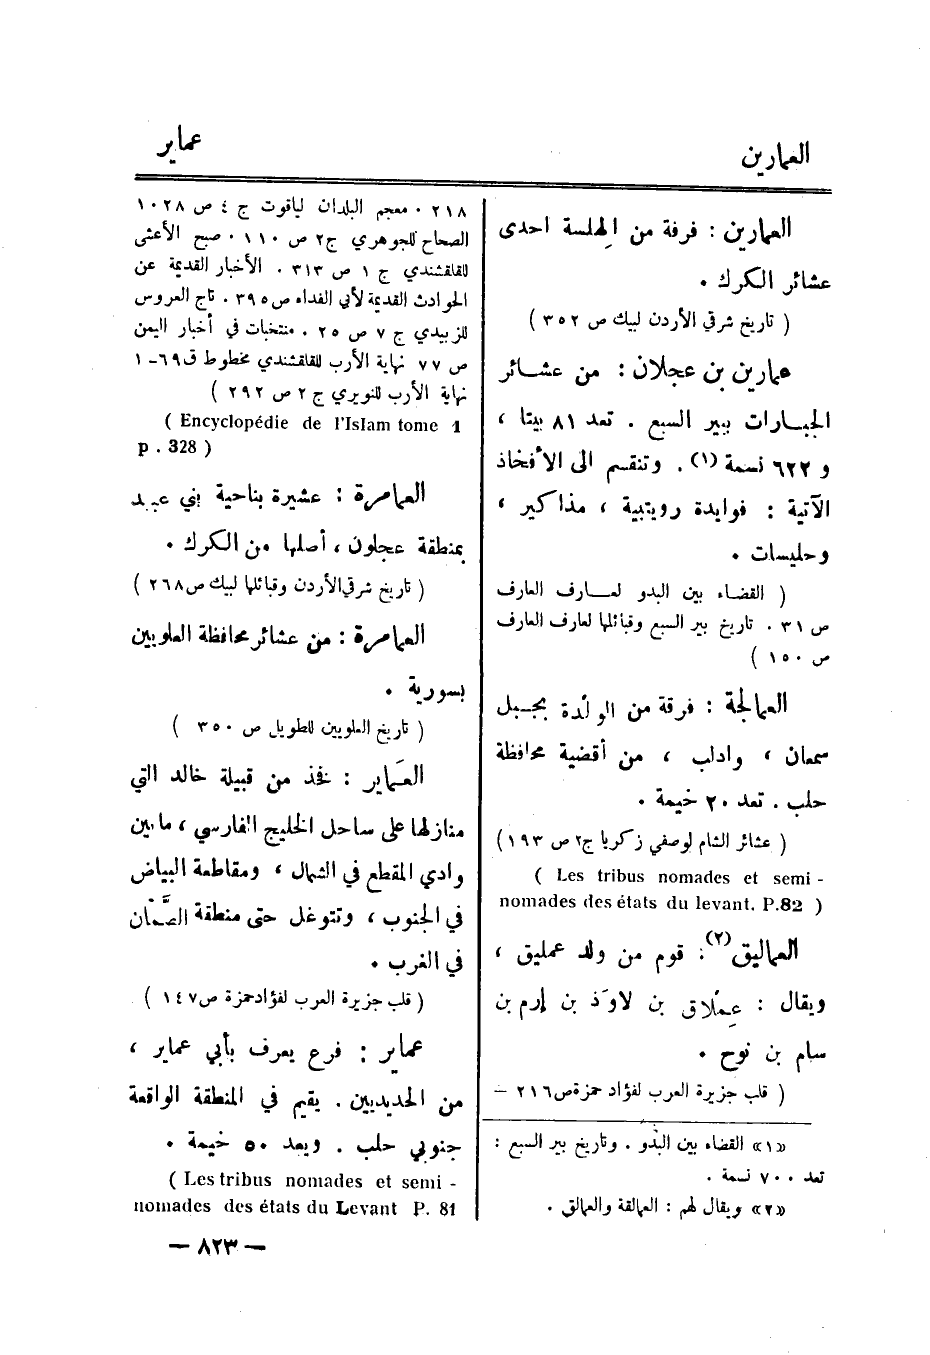 العمارين
عماير
العمارين : فرقة من الهلسة احدى
عشائر الكرك .
( تاريخ شرقي الأردن لبيك ص ٣٥٢ )
عمارين بن عجلان : من عشائر
الجبارات ببير السبع . تعد ٨١ بيتا ،
و ٦٢٢ نسمة (١) . وتنقسم الى الأفخاذ
الآتية : فوايدة رويتبية ، مذاكير ،
وحليسات .
( القضاء بين البدو لعارف العارف
ص ٣١ . تاريخ بير السبع وقبائلها لعارف العارف
ص ١٥٠ )
العمالجة : فرقة من الولدة بجبل
سمعان ، وادلب ، من أقضية محافظة
حلب . تعد ٢٠ خيمة .
( عشائر الشام لوصفي زكريا ج٢ ص ١٩٣ )
( Les tribus nomades et semi -
nomades des états du levant. P.82 )
العماليق (٢) : قوم من ولد عمليق ،
ويقال : عِمْلاق بن لاوَذ بن إرم بن
سام بن نوح .
( قلب جزيرة العرب لفؤاد حمزة ص ٢١٦ –
«١» القضاء بين البدو . وتاريخ بير السبع :
تعد ٧٠٠ نسمة .
«٢» ويقال لهم : العمالقة والعمالق .
٢١٨ . معجم البلدان لياقوت ج ٤ ص ١٠٢٨
الصحاح للجوهري ج٢ ص ١١٠ . صبح الأعشى
للقلقشندي ج ١ ص ٣١٣ . الأخبار القديمة عن
الحوادث القديمة لأبي الفداء ص ٣٩٥ . تاج العروس
للزبيدي ج ٧ ص ٢٥ . منتخبات في أخبار اليمن
ص ٧٧ نهاية الأرب للقلقشندي مخطوط ق ٦٩ – ١
نهاية الأرب للنويري ج ٢ ص ٢٩٢ )
( Encyclopédie de l'Islam tome 1
p . 328 )
العمامرة : عشيرة بناحية بني عبيد
بمنطقة عجلون ، أصلها من الكرك .
( تاريخ شرقي الأردن وقبائلها لبيك ص ٢٦٨ )
العمامرة : من عشائر محافظة العلويين
بسورية .
( تاريخ العلويين للطويل ص ٣٥٠ )
العَماير : فخذ من قبيلة خالد التي
منازلها على ساحل الخليج الفارسي ، ما بين
وادي المقطع في الشمال ، ومقاطعة البياض
في الجنوب ، وتتوغل حتى منطقة الصَّمَّان
في الغرب .
( قلب جزيرة العرب لفؤاد حمزة ص ١٤٧ )
عماير : فرع يعرف بأبي عماير ،
من الحديديين . يقيم في المنطقة الواقعة
جنوبي حلب . ويعد ٥٠ خيمة .
( Les tribus nomades et semi -
nomades des états du Levant P. 81
— ٨٢٣ —